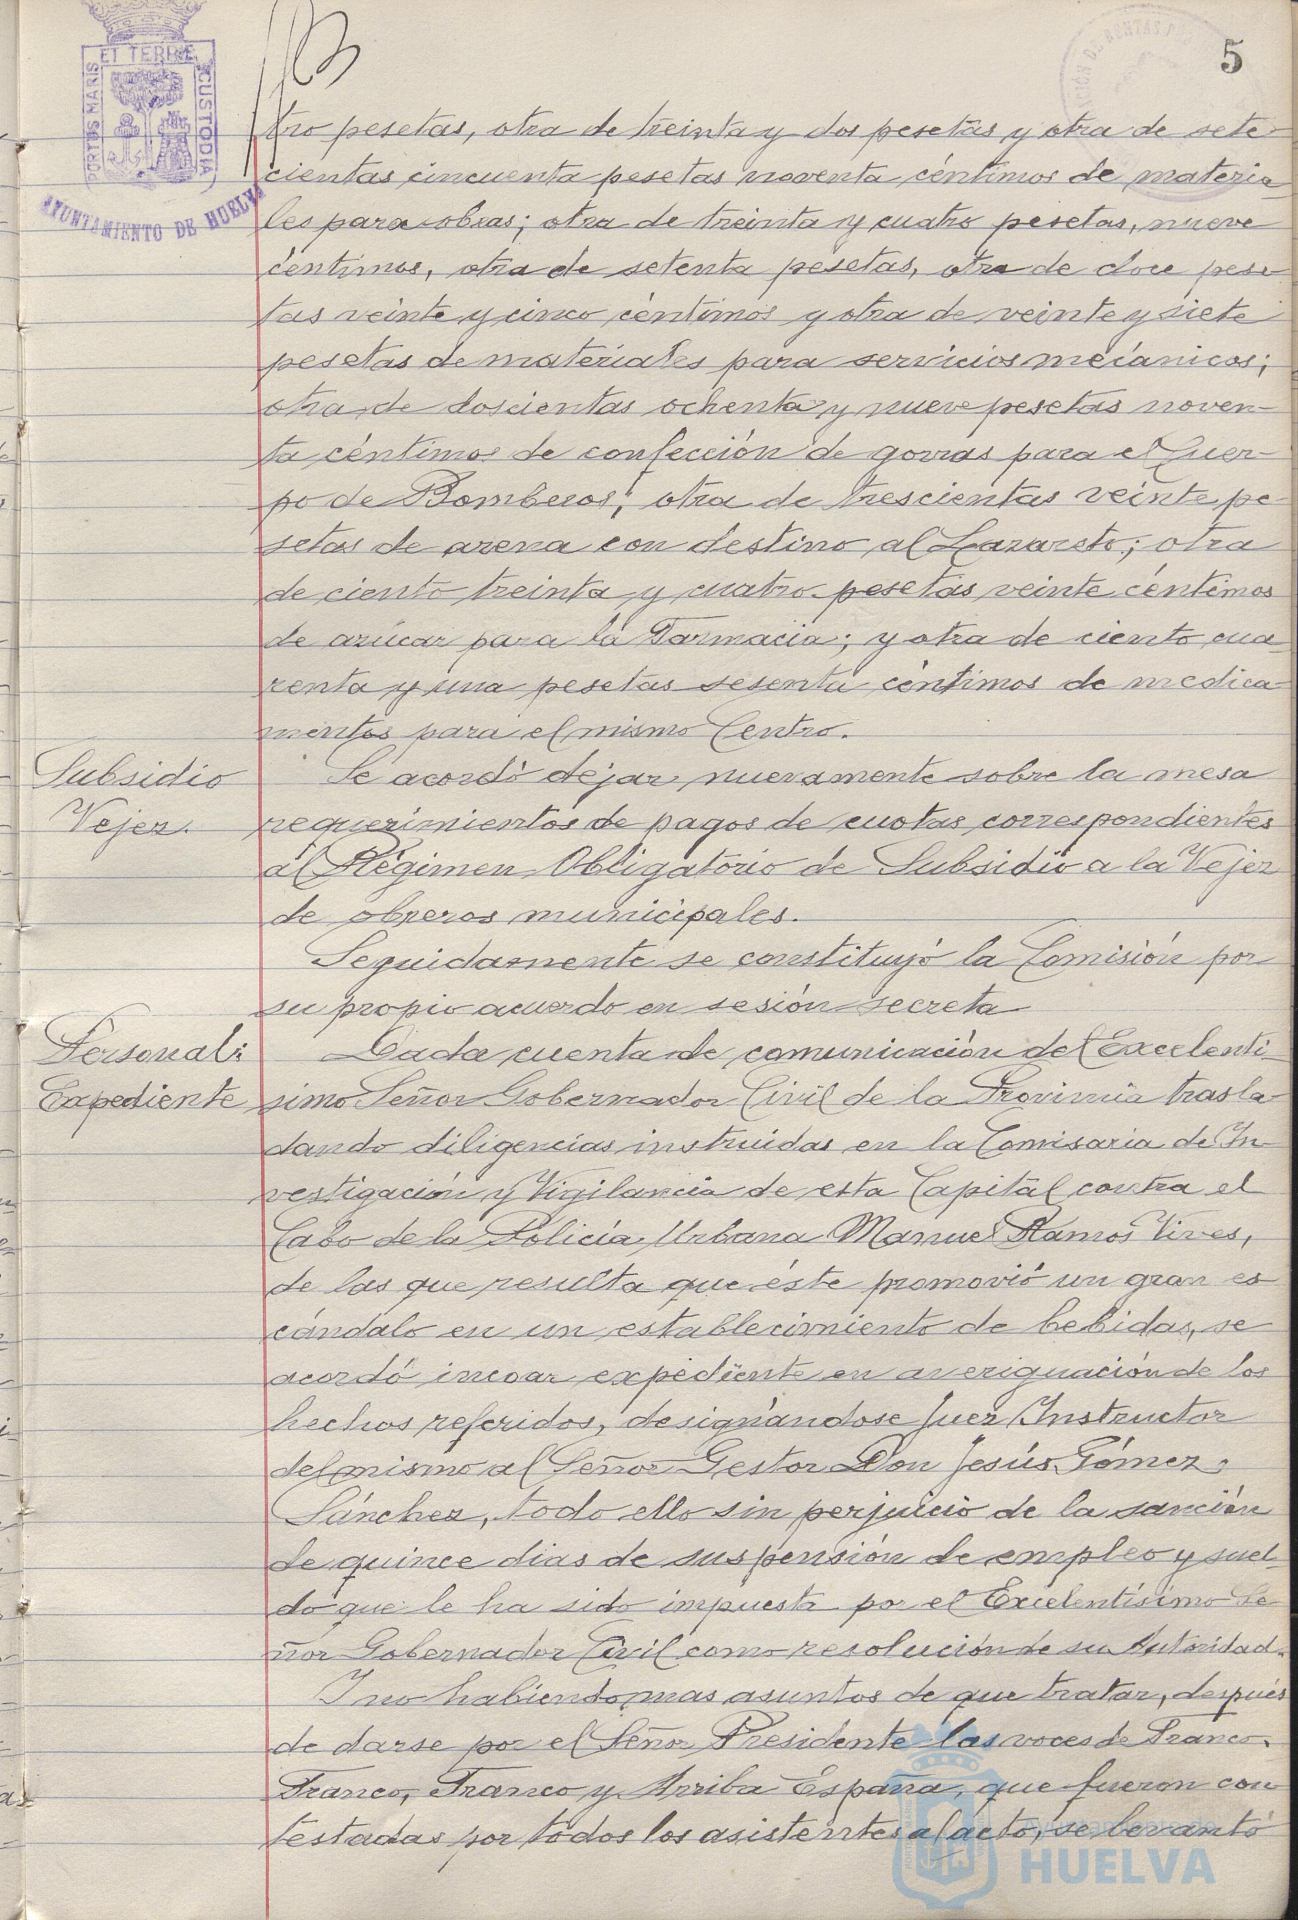 5
ET TERRE
PORTUS MARIS
CUSTODIA
AYUNTAMIENTO DE HUELVA
tro pesetas, otra de treinta y dos pesetas y otra de sete-
cientas cincuenta pesetas noventa céntimos de materia-
les para obras; otra de treinta y cuatro pesetas, nueve
céntimos, otra de setenta pesetas, otra de doce pese-
tas veinte y cinco céntimos y otra de veinte y siete
pesetas de materiales para servicios mecánicos;
otra de doscientas ochenta y nueve pesetas noven-
ta céntimos de confección de gorras para el Cuer-
po de Bomberos; otra de trescientas veinte pe-
setas de arena con destino al Lazareto; otra
de ciento treinta y cuatro pesetas veinte céntimos
de azúcar para la Farmacia; y otra de ciento cua-
renta y una pesetas sesenta céntimos de medica-
mentos para el mismo Centro.
Subsidio
Vejez.
Se acordó dejar nuevamente sobre la mesa
requerimientos de pagos de cuotas correspondientes
al Régimen Obligatorio de Subsidio a la Vejez
de obreros municipales.
Seguidamente se constituyó la Comisión por
su propio acuerdo en sesión secreta
Personal:
Expediente
Dada cuenta de comunicación del Excelentí-
simo Señor Gobernador Civil de la Provincia trasla-
dando diligencias instruidas en la Comisaria de In-
vestigación y Vigilancia de esta Capital contra el
Cabo de la Policía Urbana Manuel Ramos Vives,
de las que resulta que éste promovió un gran es
cándalo en un establecimiento de bebidas, se
acordó incoar expediente en averiguación de los
hechos referidos, designándose Juez Instructor
del mismo al Señor Gestor Don Jesús Gómez
Sánchez, todo ello sin perjuicio de la sanción
de quince dias de suspensión de empleo y suel-
do que le ha sido impuesta por el Excelentísimo Se-
ñor Gobernador Civil como resolución de su Autoridad.
Y no habiendo mas asuntos de que tratar, después
de darse por el Señor Presidente las voces de Franco,
Franco, Franco y Arriba España, que fueron con
testadas por todos los asistentes al acto, se levantó
HUELVA